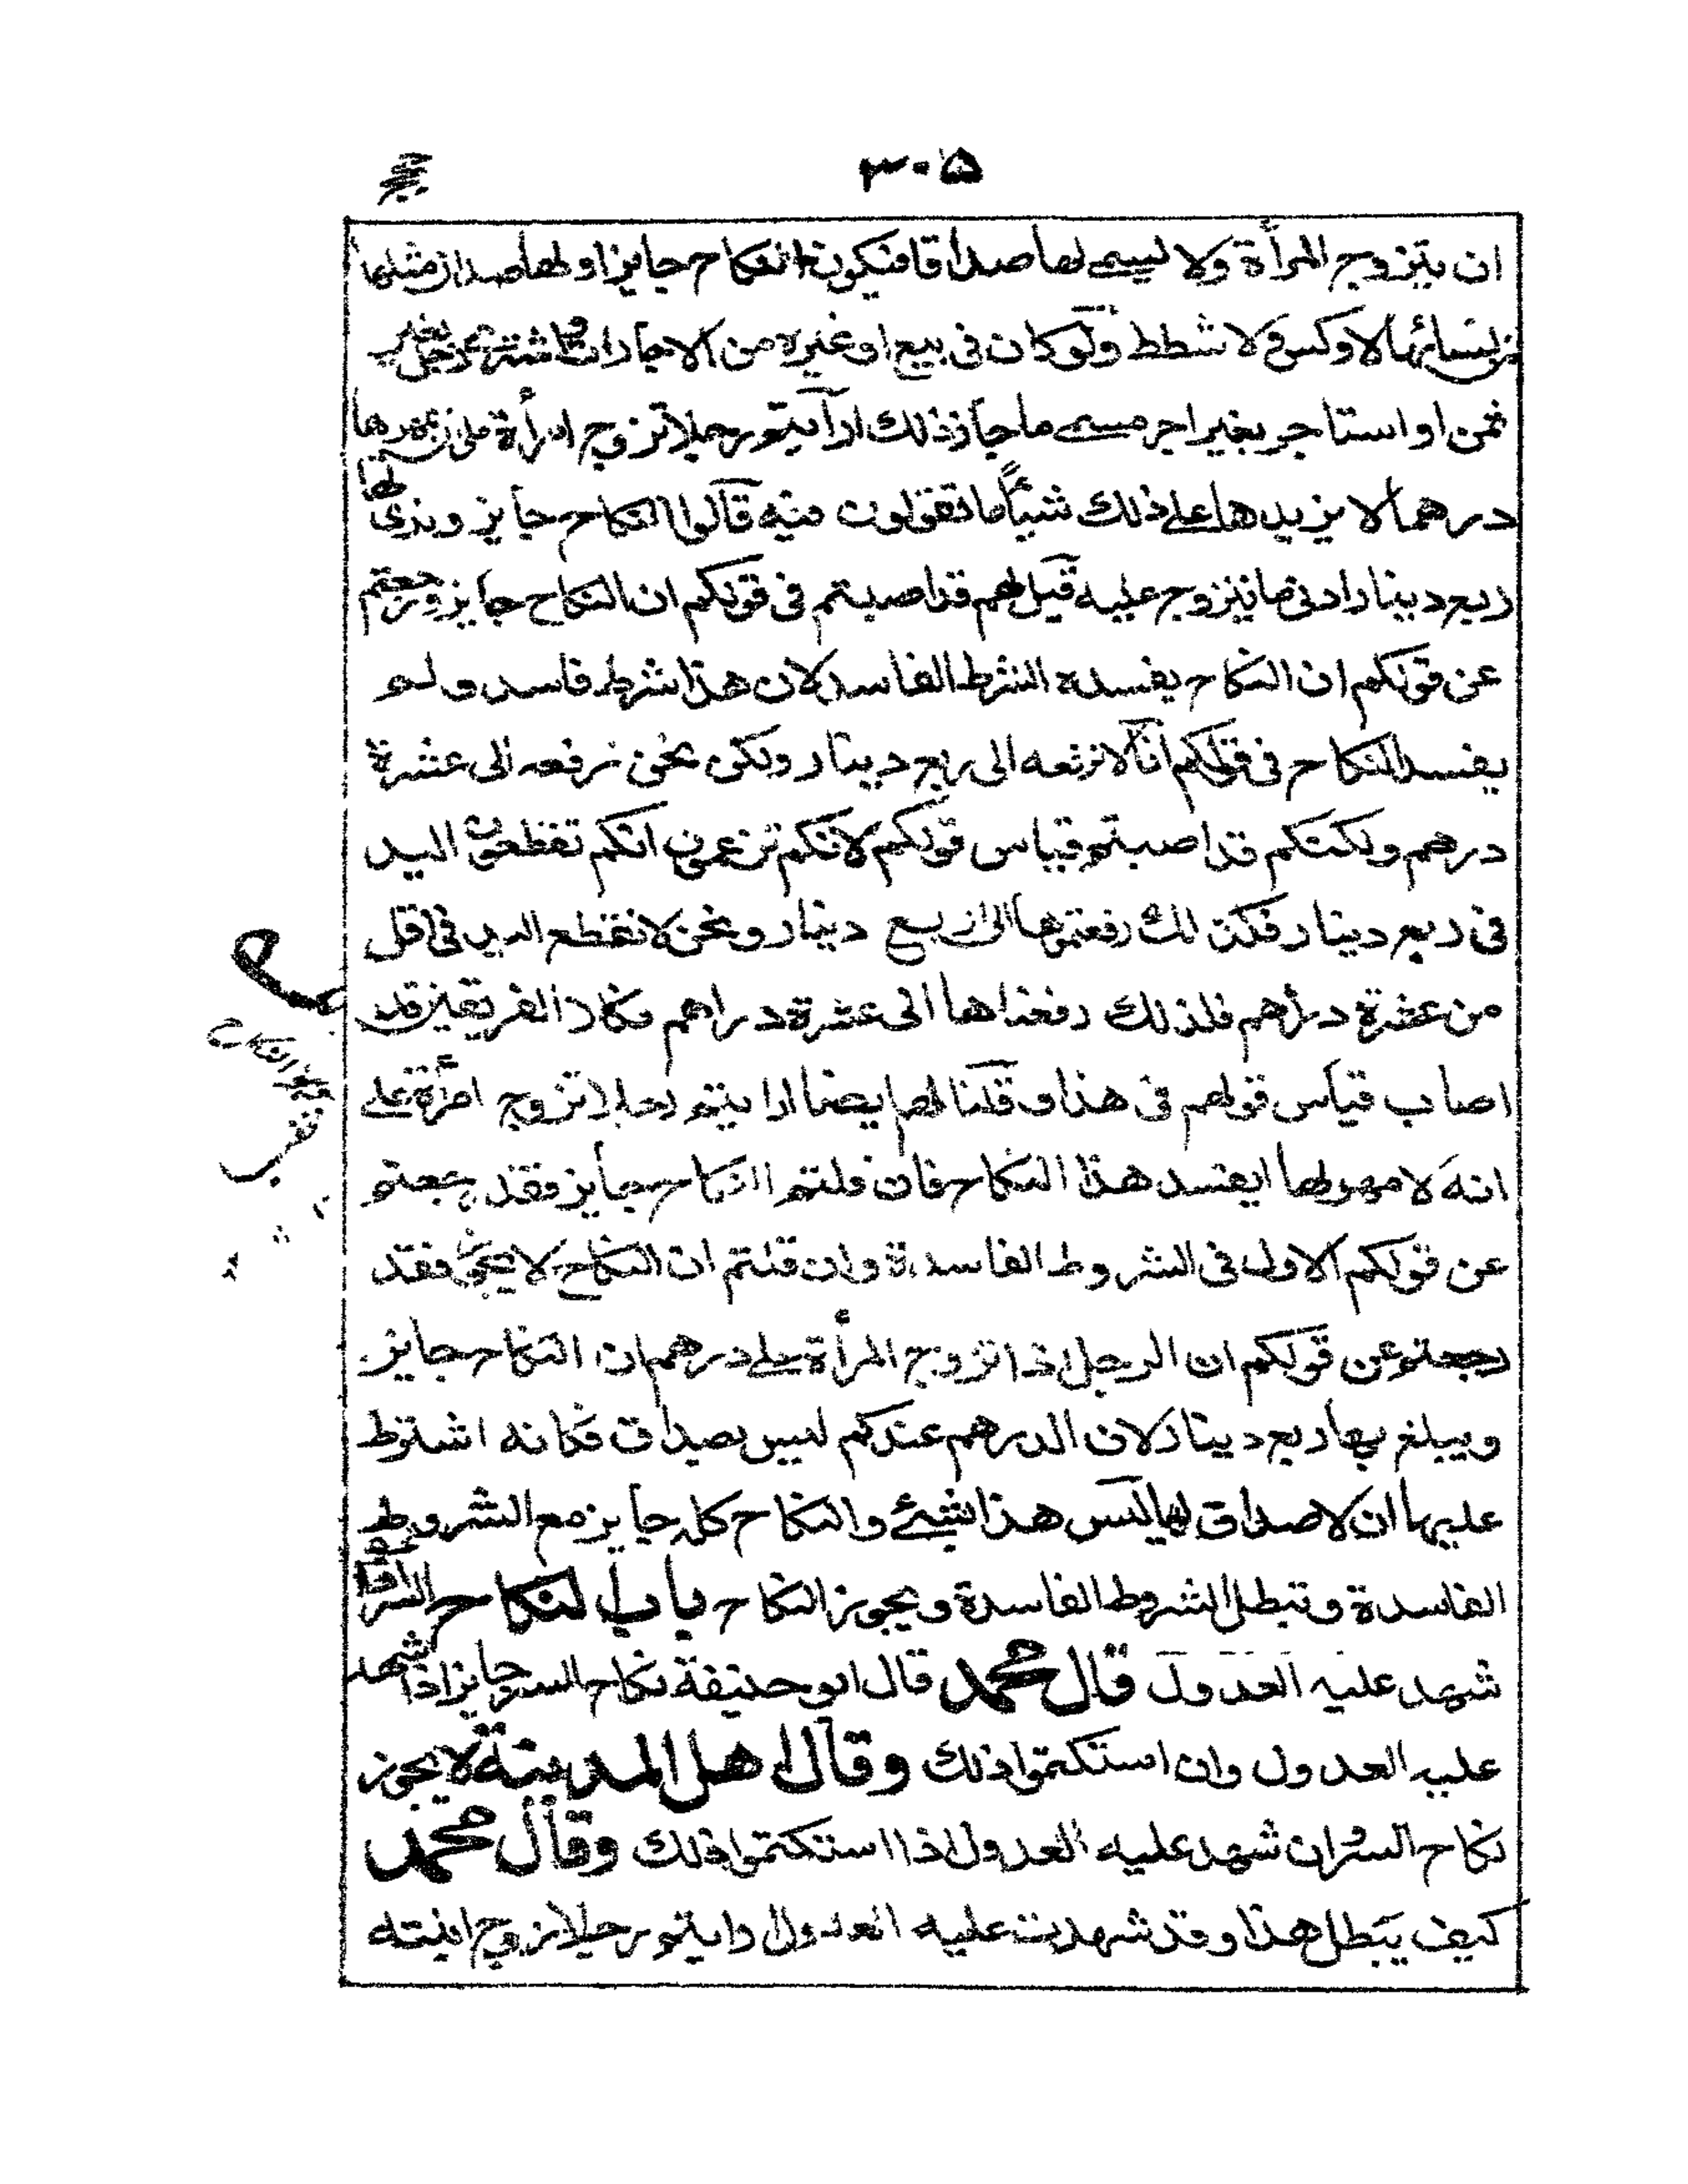 ٣٠٥
ان يتزوج المرأة ولا يسمى لها صداقا فيكون النكاح جايزا ولها صداق مثلها
من نسائها لا وكس ولا شطط ولو كان فى بيع او غيره من الاجارات اشترى رجل بغير
ثمن او استاجر بغير اجر مسمى ما جاز ذلك ارأيتم رجلا تزوج امرأة على ان يمهرها
درهما لا يزيدها على ذلك شيئاً ما تقولون فيه قالوا النكاح جايز ويزى لها
ربع دينار ادنى ما يتزوج عليه قيل لهم قد اصبتم فى قولكم ان النكاح جايز ورجعتم
عن قولكم ان النكاح يفسده الشرط الفاسد لان هذا شرط فاسد ولو
يفسد النكاح فى قولكم انا لا نرفعه الى ربع دينار ولكن نحن نرفعه الى عشرة
درهم ولكنكم قد اصبتم قياس قولكم لانكم تزعمون انكم تقطعون اليد
فى ربع دينار فكذلك رفعتموها الى ربع دينار ونحن لا نقطع اليد فى اقل
من عشرة دراهم فلذلك رفعناها الى عشرة دراهم فكلا الفريقين قد
اصاب قياس قولهم فى هذا وقلنا لهم ايضا ارايتم رجلا تزوج امرأة على
انه لا مهر لها ايفسد هذا النكاح فان قلتم النكاح جايز فقد رجعتم
عن قولكم الاول فى الشروط الفاسدة وان قلتم ان النكاح لا يجوز فقد
رجعتم عن قولكم ان الرجل اذا تزوج المرأة على درهم ان النكاح جايز
ويبلغ بها ربع دينار لان الدرهم عندكم ليس بصداق فكانه اشترط
عليها ان لا صداق لها ليس هذا بشئ والنكاح كله جايز مع الشروط
الفاسدة وتبطل الشروط الفاسدة ويجوز النكاح باب النكاح السر اذا
شهد عليه العدول قال محمد قال ابو حنيفة نكاح السر جايز اذا شهد
عليه العدول وان استكتموا ذلك وقال اهل المدينة لا يجوز
نكاح السر وان شهد عليه العدول اذا استكتموا ذلك وقال محمد
كيف يبطل هذا وقد شهدت عليه العدول ارايتم رجلا زوج ابنته